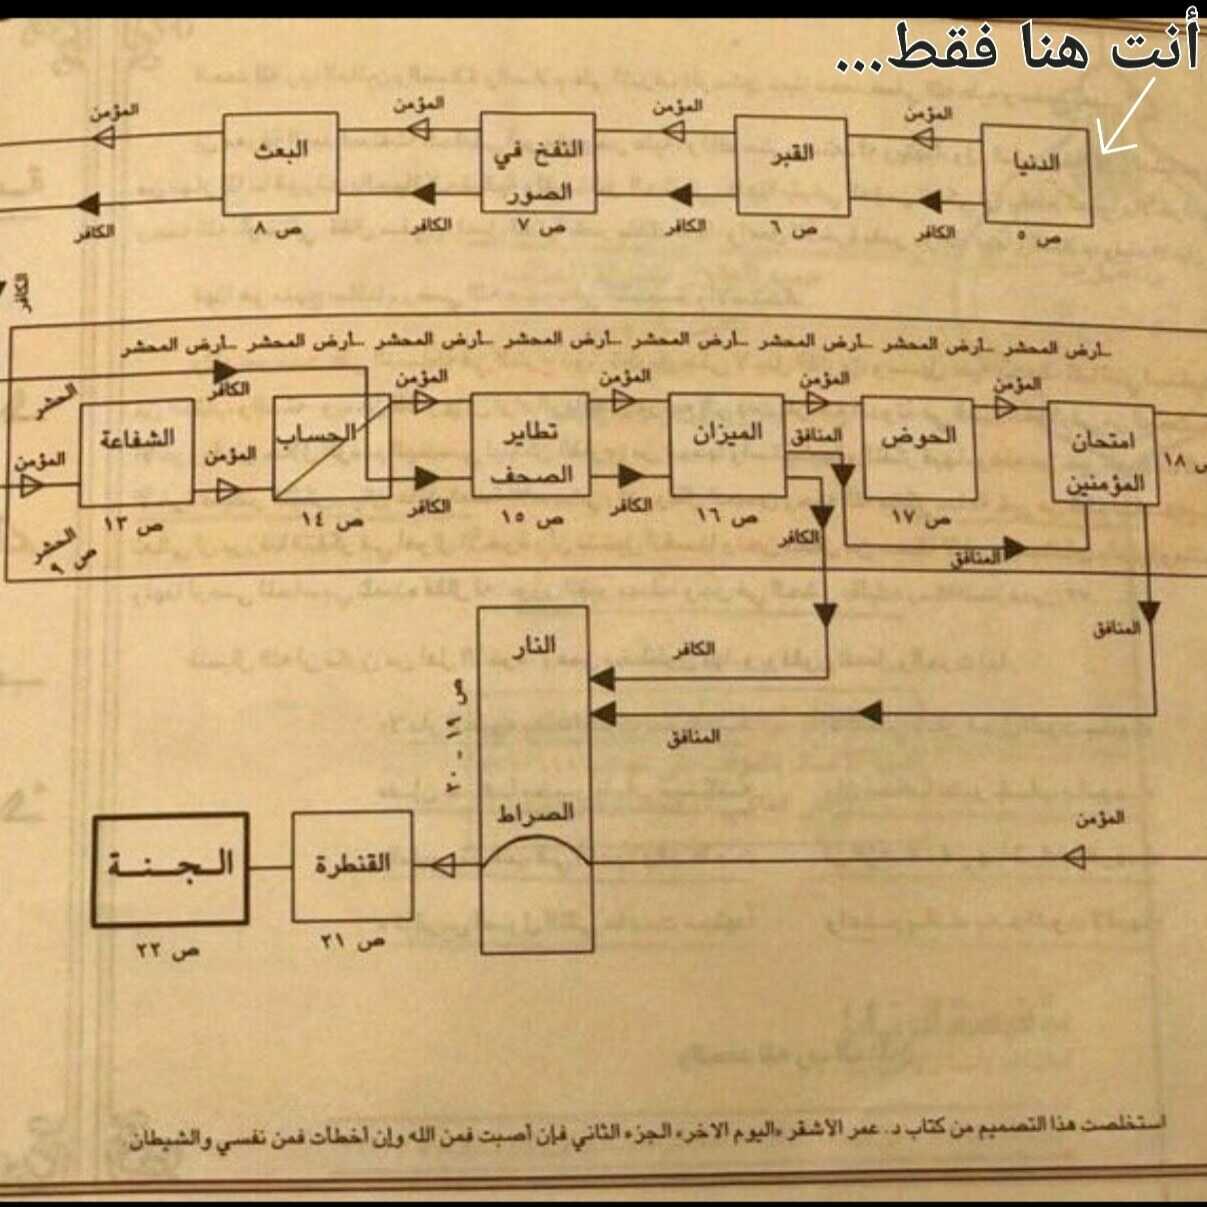 أنت هنا فقط...
المؤمن المؤمن المؤمن المؤمن
الدنيا القبر النفخ في الصور البعث
الكافر الكافر الكافر الكافر
ص ٥ ص ٦ ص ٧ ص ٨
الكافر
أرض المحشر _ أرض المحشر _ أرض المحشر _ أرض المحشر _ أرض المحشر _ أرض المحشر _ أرض المحشر _ أرض المحشر
الحشر الكافر المؤمن المؤمن المؤمن المؤمن
المؤمن الشفاعة المؤمن الحساب تطاير الصحف الميزان المنافق الحوض امتحان المؤمنين
الكافر الكافر الكافر المنافق
الحشر ص ٩ ص ١٣ ص ١٤ ص ١٥ ص ١٦ ص ١٧ ص ١٨
النار الكافر المنافق
المنافق
ص ١٩ - ٢٠
الصراط المؤمن
القنطرة الـجـنـة
ص ٢١ ص ٢٢
استخلصت هذا التصميم من كتاب د. عمر الأشقر «اليوم الاخر» الجزء الثاني فإن أصبت فمن الله وإن أخطأت فمن نفسي والشيطان.